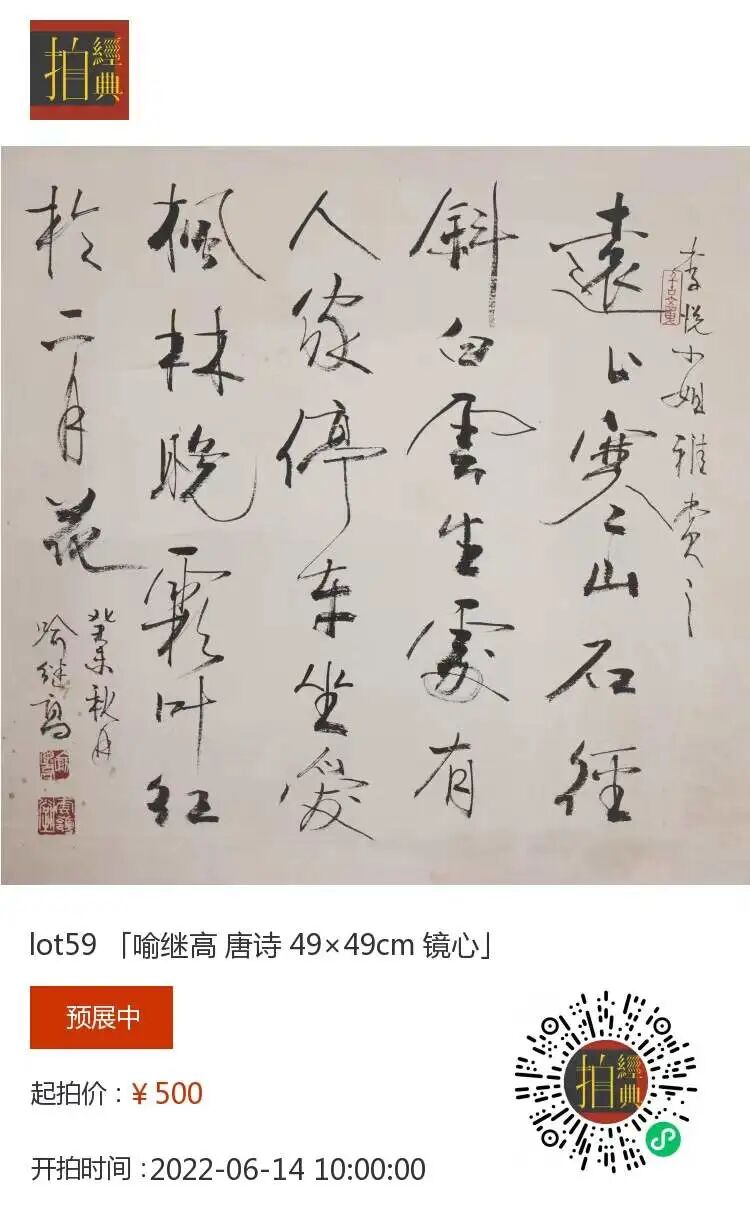 經典
拍
李悦小姐雅赏之
遠上寒山石徑
斜白雲生處有
人家停车坐愛
楓林晚霜叶红
於二月花
癸未秋月
喻继高
lot59 「喻继高 唐诗 49×49cm 镜心」
预展中
起拍价：¥ 500
开拍时间：2022-06-14 10:00:00
經典
拍